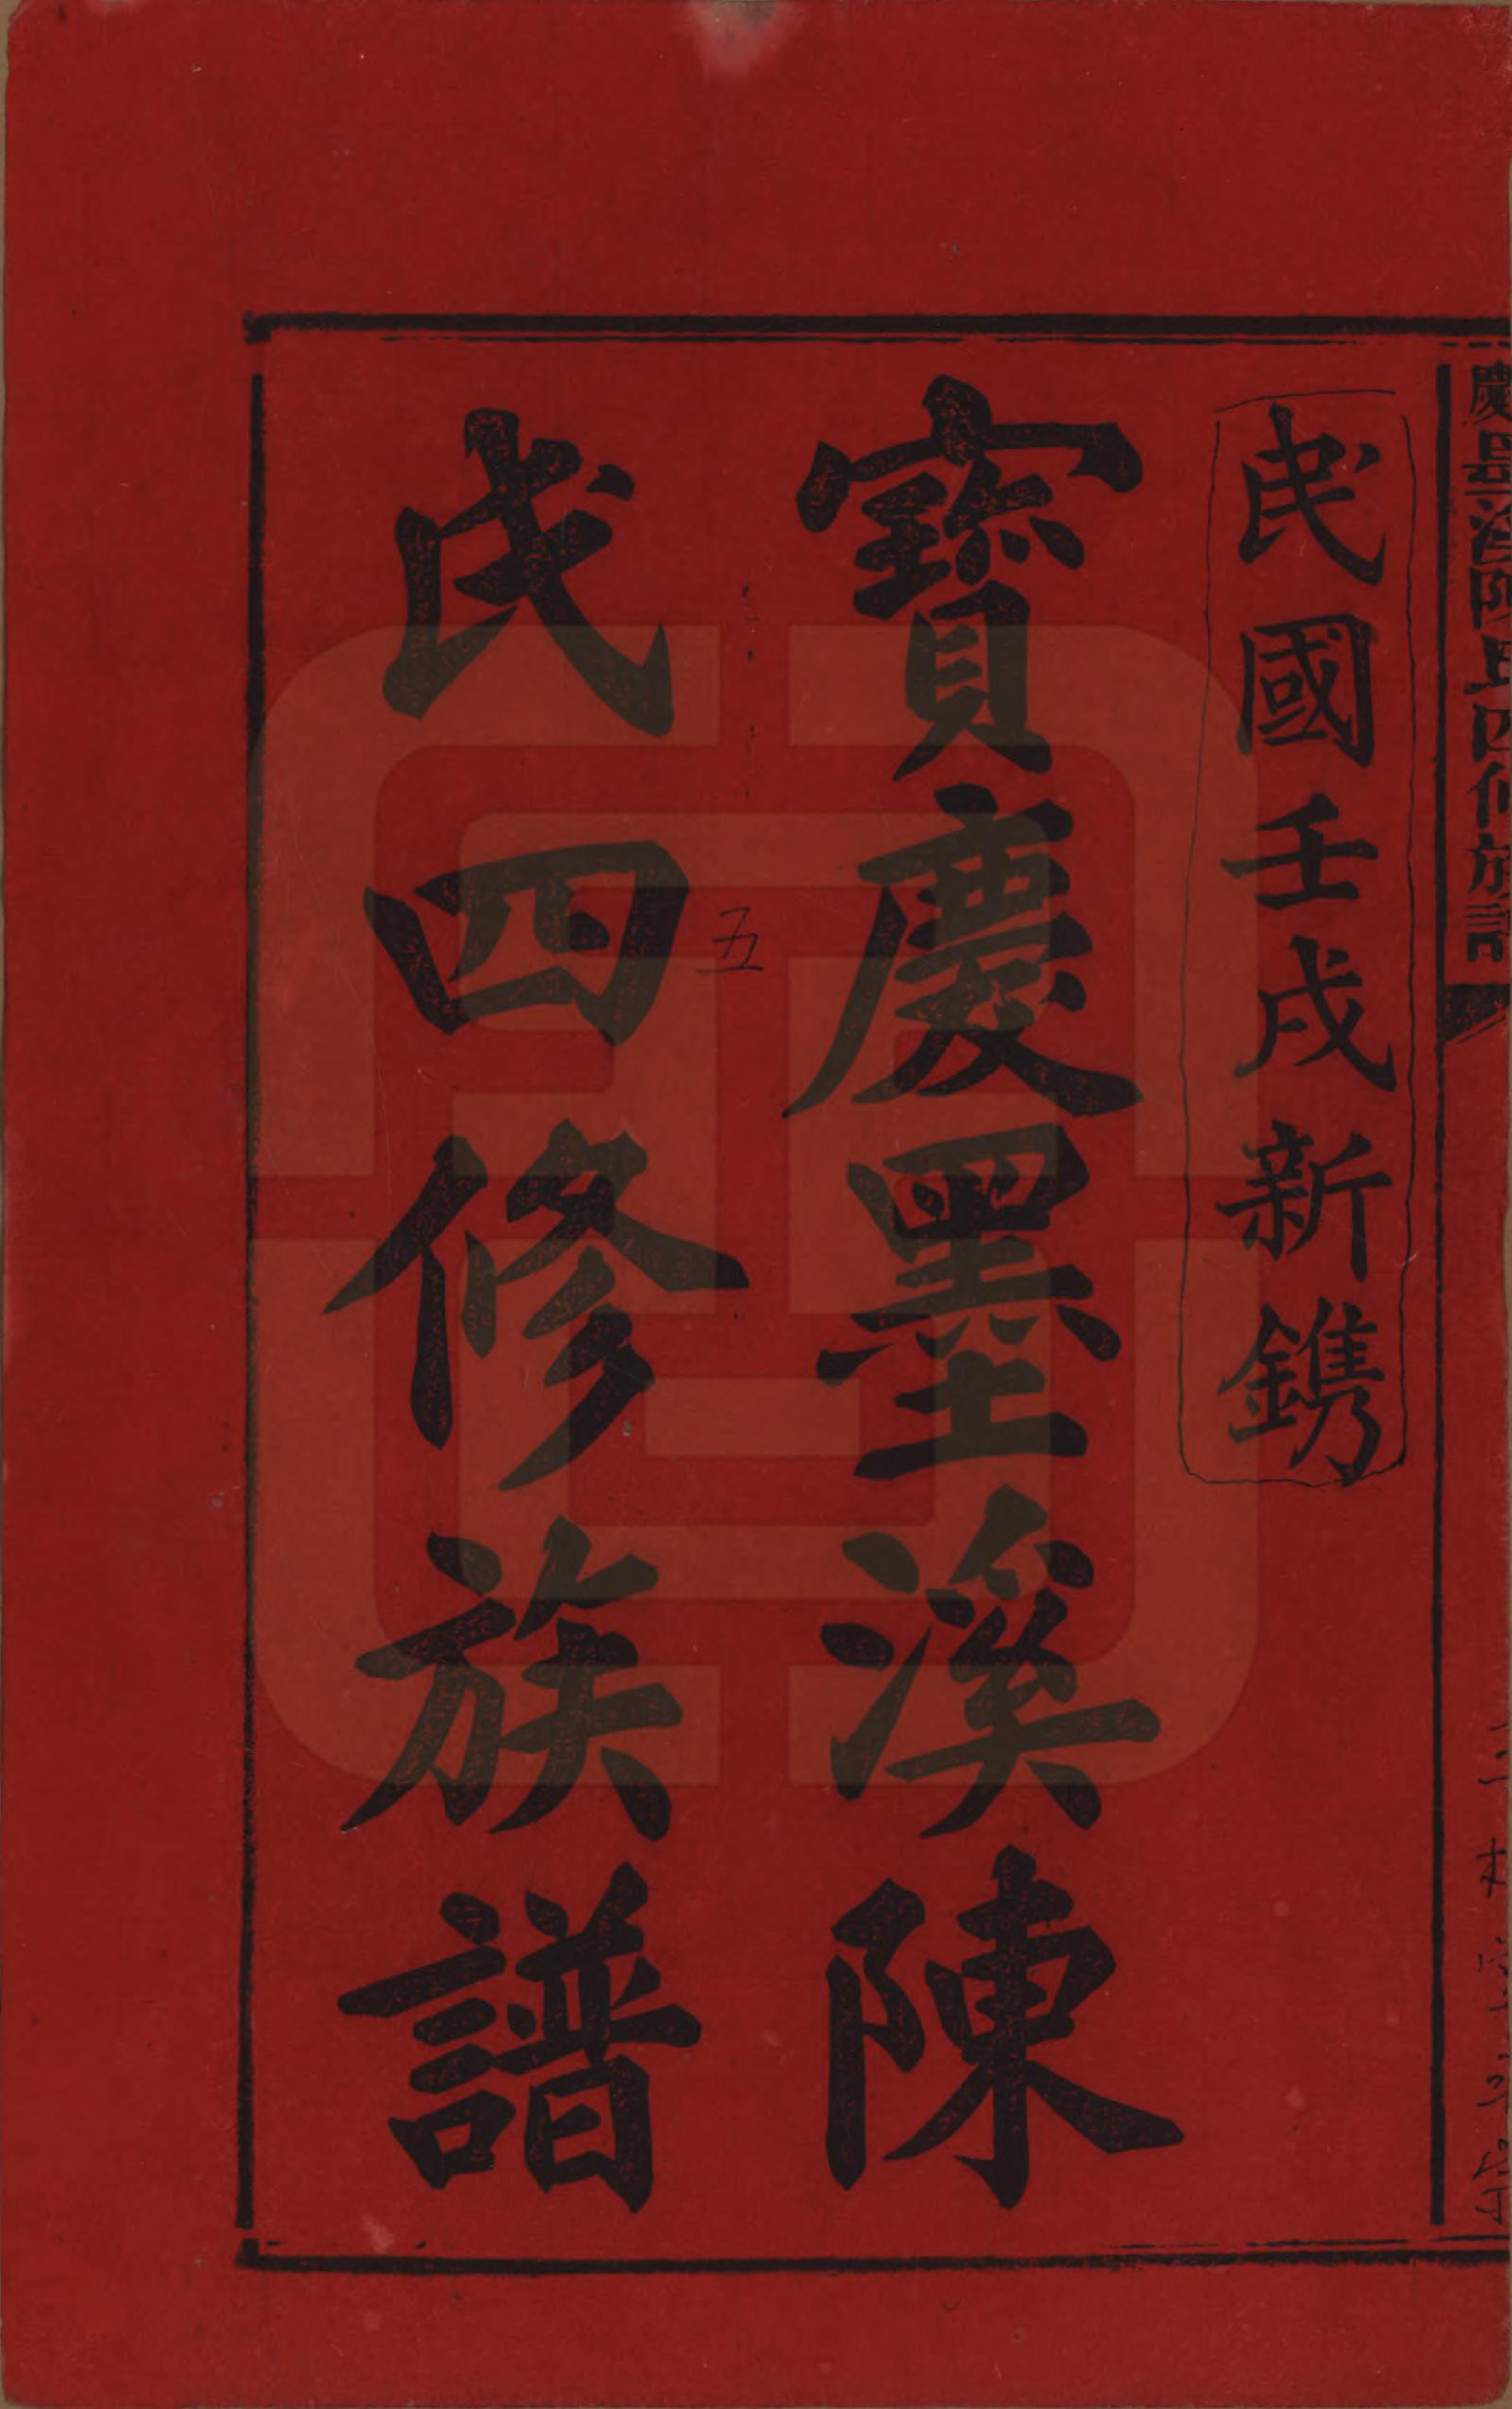 慶墨溪陳氏四修族譜
民國壬戌新鐫
寶慶墨溪陳
五
氏四修族譜